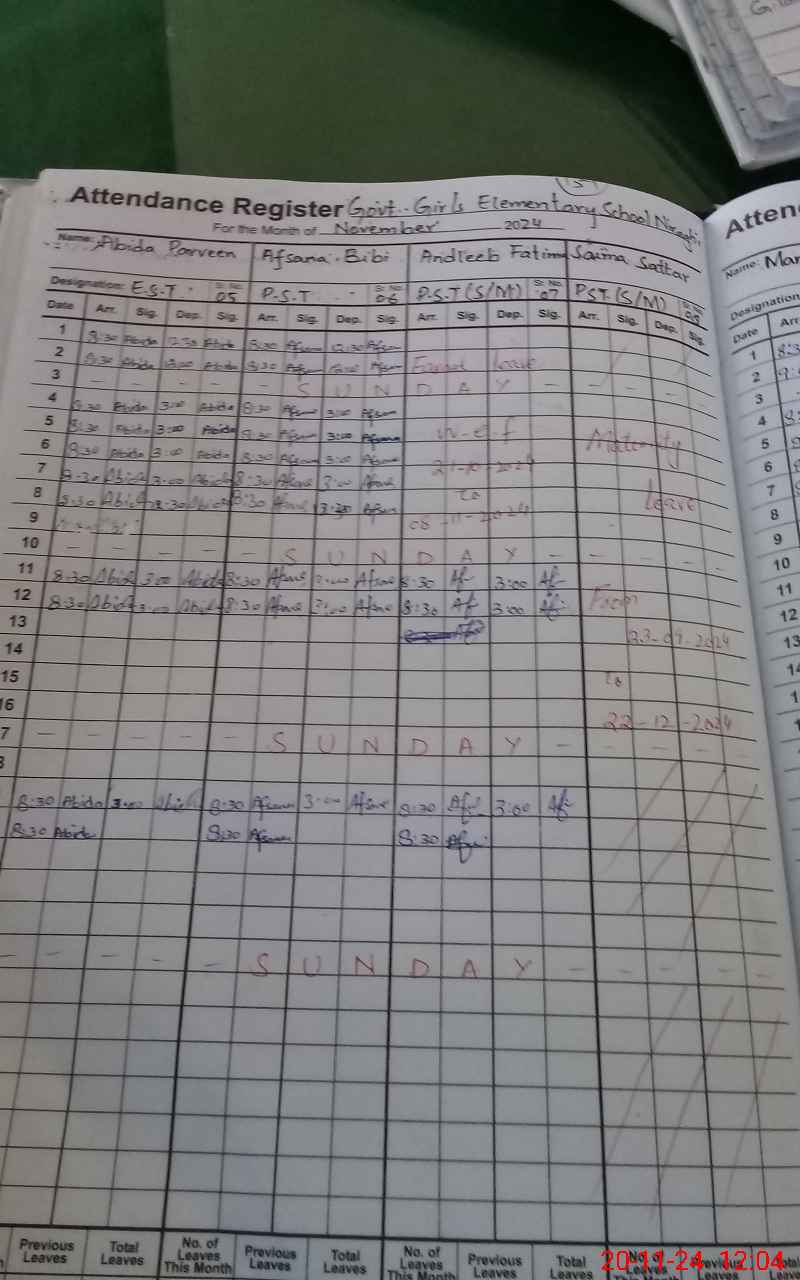 Attendance Register Govt. Girls Elementary School
For the Month of November 2024
Name: Abida Parveen Afsana Bibi Andleeb Fatima Saima Sattar
Designation: E.S.T Sr. No 05 P.S.T Sr. No 06 P.S.T (S/M) Sr. No 07 PST (S/M) Sr. No
Date Arr. Sig. Dep. Sig. Arr. Sig. Dep. Sig. Arr. Sig. Dep. Sig. Arr. Sig. Dep. Sig.
1 8:30 Abida 12:30 Abida 8:30 Afsana 12:30 Afsana
2 8:30 Abida Abida 8:30 Afsana Afsana leave
3 – – – – – S U N D A Y – – – –
4 8:30 Abida 3:00 Abida 8:30 Afsana 3:00 Afsana
5 8:30 Abida 3:00 Abida 8:30 Afsana 3:00 Afsana w-e-f Maternity
6 8:30 Abida 3:00 Abida 8:30 Afsana 3:00 Afsana
7 8:30 Abida 3:00 Abida 8:30 Afsana 3:00 Afsana to leave
8 8:30 Abida Abida 8:30 Afsana Afsana 08-11-2024
9
10 – – – – – S U N D A Y – – – –
11 8:30 Abida 3:00 Abida 8:30 Afsana 3:00 Afsana 8:30 Af 3:00 Af
12 8:30 Abida 3:00 Abida 8:30 Afsana 3:00 Afsana 8:30 Af 3:00 Af From
13 23-09-2024
14
15 to
16 22-12-2024
7 – – – – – S U N D A Y – – – –
8:30 Abida 3:00 Abida 8:30 Afsana 3:00 Afsana 8:30 Af 3:00 Af
8:30 Abida 8:30 Afsana 8:30 Af
– – – – – S U N D A Y – – – – –
Previous Leaves Total Leaves No. of Leaves This Month Previous Leaves Total Leaves No. of Leaves This Month Previous Leaves Total Leaves No. of Leaves This Month Previous Leaves Total Leaves
20-11-24 12:04
Atten
Name: Mar
Designation
Date Arr
1 8:3
2 9:
3
4 8:
5
6
7
8
9
10
11
12
13
14